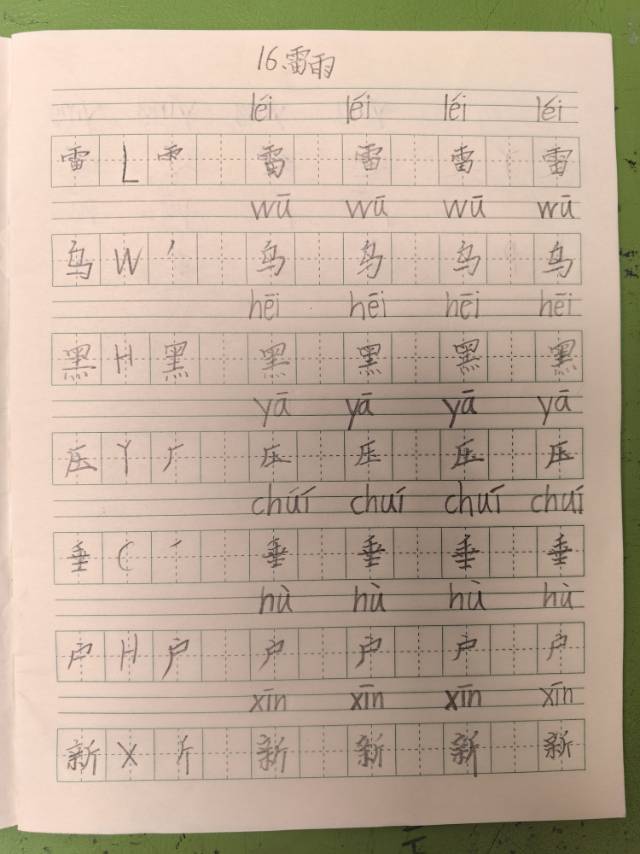 16、雷雨
léi léi léi léi
雷 L 雷 雷 雷 雷
wū wū wū wū
乌 W 丿 乌 乌 乌 乌
hēi hēi hēi hēi
黑 H 黑 黑 黑 黑 黑
yā yā yā yā
压 Y 厂 压 压 压 压
chúí chuí chuí chuí
垂 C 丿 垂 垂 垂 垂
hù hù hù hù
户 H 户 户 户 户 户
xīn xīn xīn xīn
新 X 斤 新 新 新 新